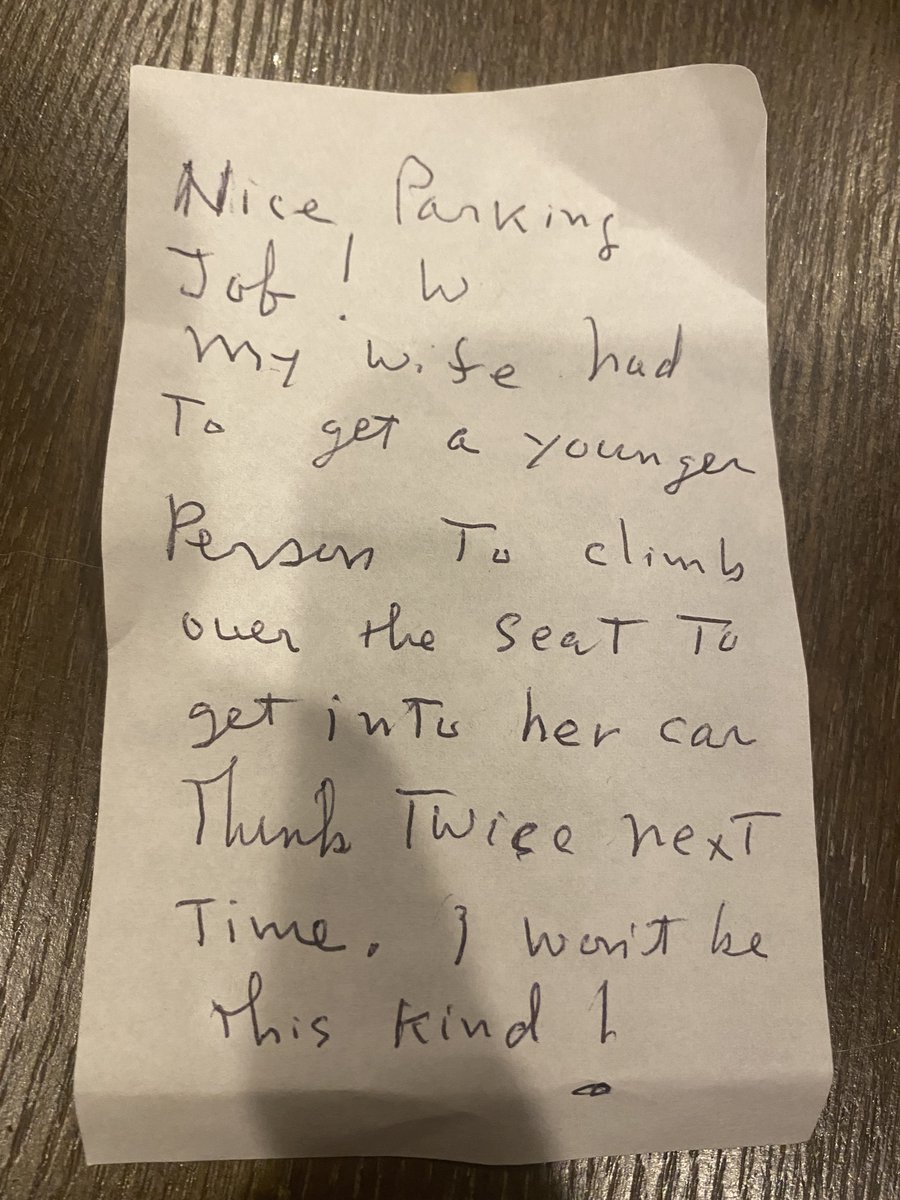 Nice Parking
Job! W
My wife had
To get a younger
Person To climb
over the seaT To
get inTo her car
Think Twice nexT
Time. I won't be
this kind!